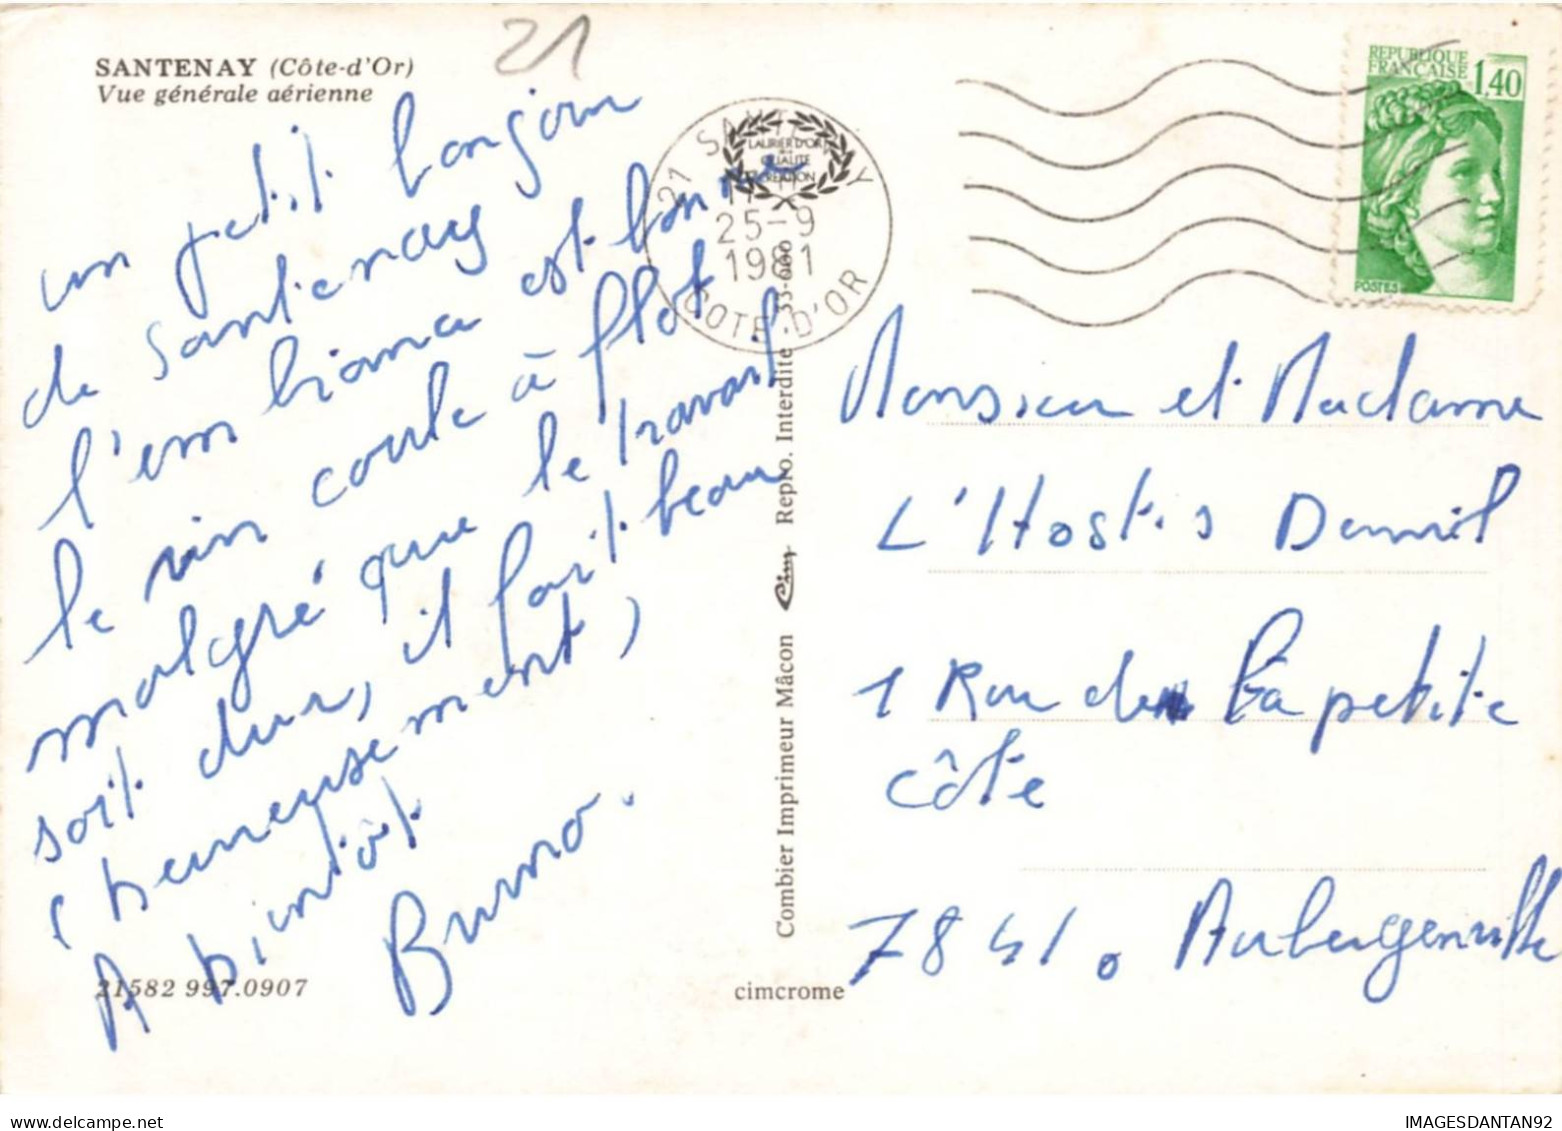 21
SANTENAY (Côte-d'Or)
Vue générale aérienne
un petit bonjour
de Santenay
l'embiance est bonne
le vin coule à flot
malgré que le travail
soit dur, il fait beau
(heureusement)
A bientôt
Bruno.
21582 997.0907
21 SANTENAY
25-9
1981
COTE D'OR
LAURIER D'OR
QUALITE
CREATION
REPUBLIQUE
FRANCAISE 1,40
POSTES
Combier Imprimeur Mâcon Cim Repro. Interdite
cimcrome
Monsieur et Madame
L'Hostis Daniel
1 Rue de la petite
côte
78410 Aubergenville
IMAGESDANTAN92